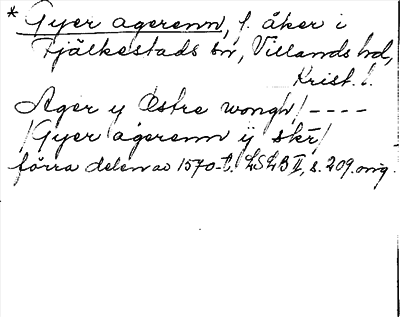 * Gyer agerenn, f. åker i
Fjälkestads sn, Villands hd,
Krist. l.
Ager y Østre wongh / ----
/ Gyer agerenn ÿ skr /
förra delen av 1570-t. LSLB II, s. 209. orig.